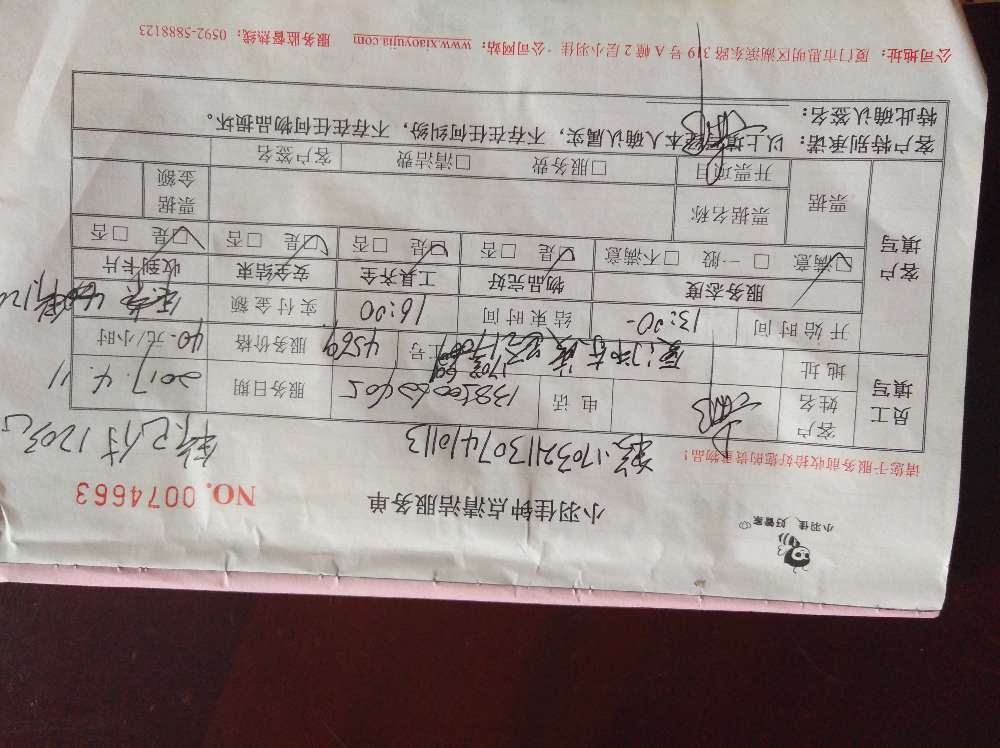 小羽佳 好管家
小羽佳钟点清洁服务单
NO. 0074663
请您于服务前收拾好您的贵重物品!
已付120元
员工填写
客户姓名
电话
服务日期 2017.4.11
地址
工号 4569
服务价格 40.元/小时
开始时间 13:00-
结束时间 16:00
实付金额
客户填写
服务态度 物品完好 工具齐全 安全结束 收到卡片
☑满意 □一般 □不满意 ☑是 □否 ☑是 □否 ☑是 □否 ☑是 □否
票据 票据名称 票据金额
开票项目 □服务费 □清洁费 客户签名
客户特别承诺：以上填写经本人确认属实，不存在任何纠纷，不存在任何物品损坏。
特此确认签名：
公司地址：厦门市思明区湖滨东路 319 号 A 幢 2 层小羽佳 公司网站：www.xiaoyujia.com 服务监督热线：0592-5888123